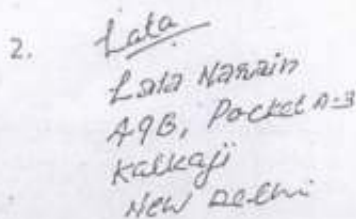 2. Lata
Lata Narain
A9B, Pocket A-3
Kalkaji
New Delhi